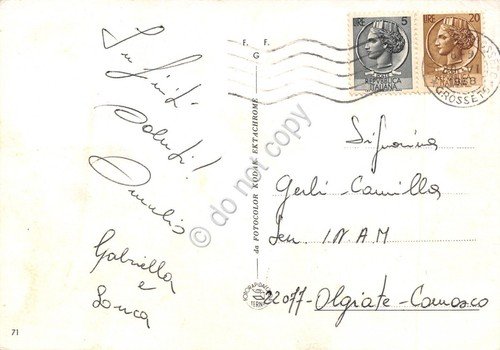 E. F.
G
LIRE 5
REPUBBLICA
ITALIANA
LIRE 20
1968
GROSSETO
saluti!
Gabriella
e
Luca
do not copy
da FOTOCOLOR KODAK EKTACHROME
Signorina
Gerli Camilla
I.N.A.M
22077-Olgiate-Comasco
71